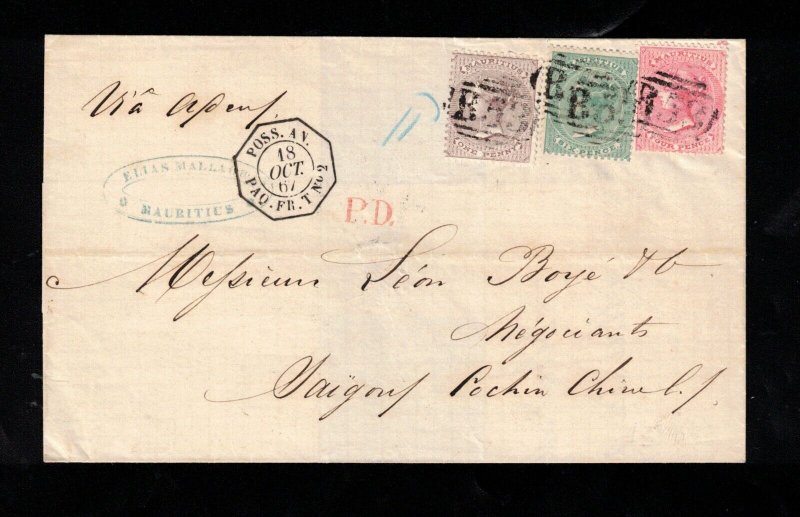 MAURITIUS
ONE PENNY
B53
B53
MAURITIUS
FOUR PENCE
B53
Via Aden
POSS. AN.
18
OCT.
67
PAQ. FR. T No 2
ELIAS MALLAC
MAURITIUS
P.D.
Messieurs Léon Boyé & Co
Négociants
Saïgon Cochin Chine